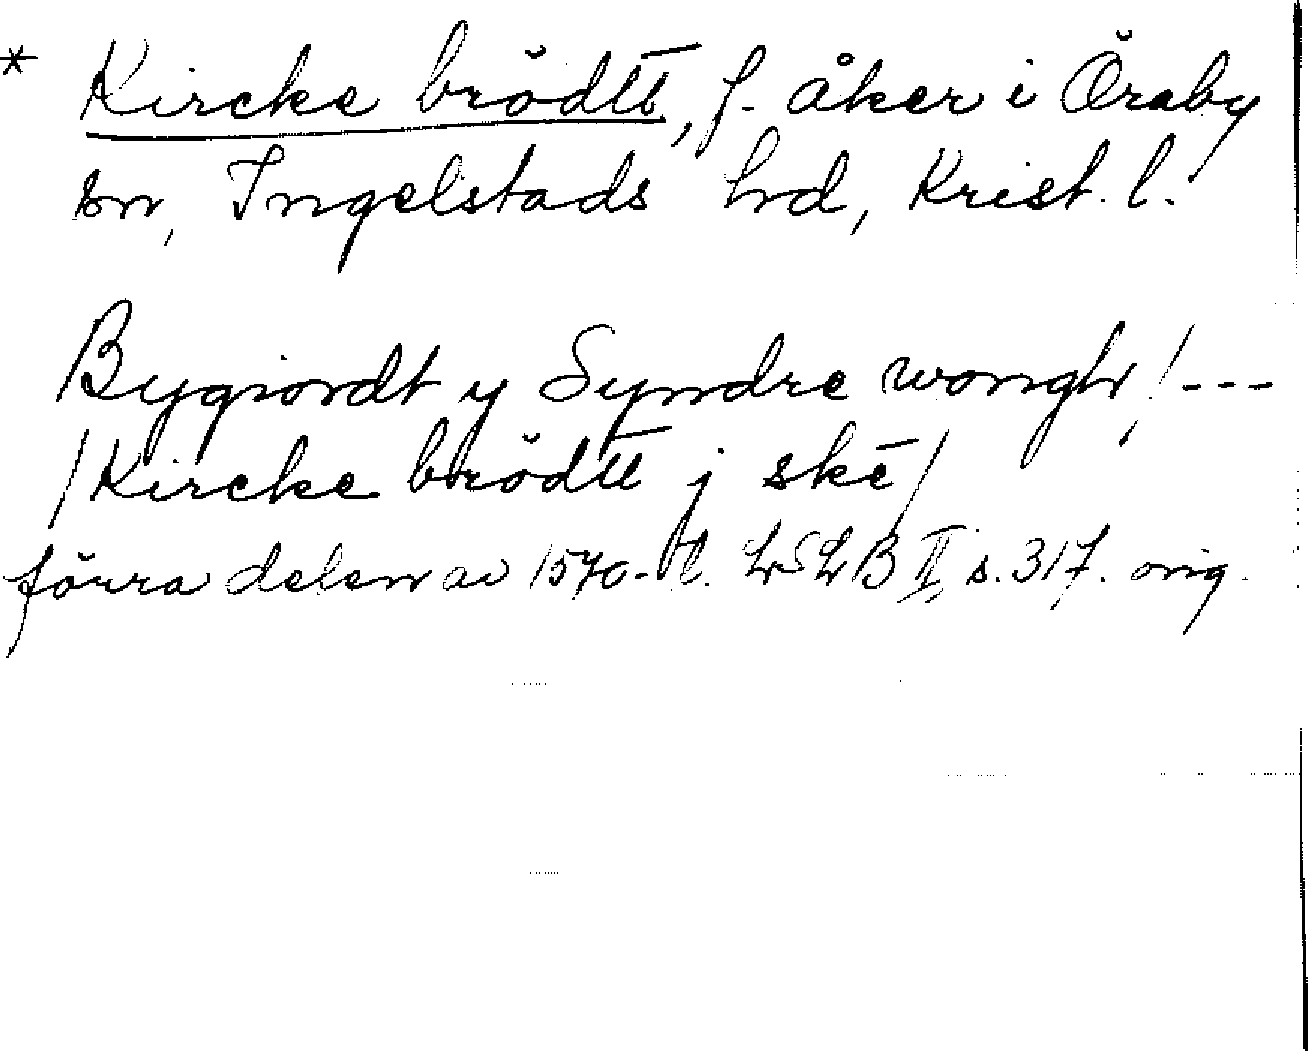 * Kircke brödtt̄, f. åker i Öraby
sn, Ingelstads hd, Krist. l.
Bygiordt y Syndre wongh, / ---
/ Kircke brödtt̄ j skē /
förra delen av 1570-t. LSLB II, s. 317. orig.